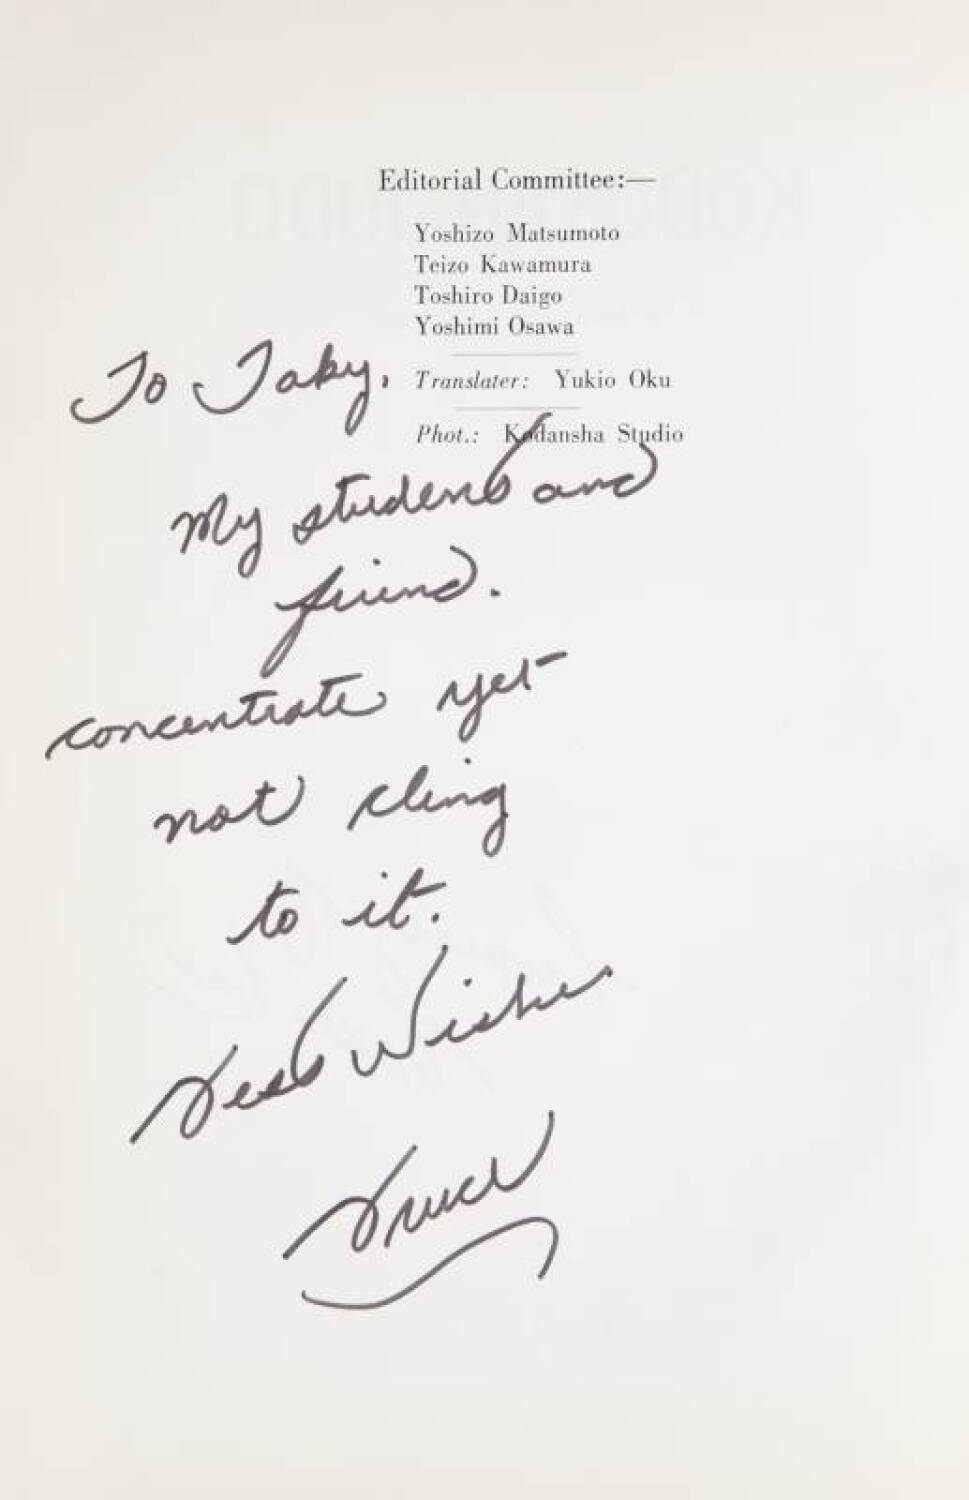 Editorial Committee:—
Yoshizo Matsumoto
Teizo Kawamura
Toshiro Daigo
Yoshimi Osawa
Translater: Yukio Oku
Phot.: Kodansha Studio
To Taky,
My student and
friend.
concentrate yet
not cling
to it.
Best Wishes
Bruce